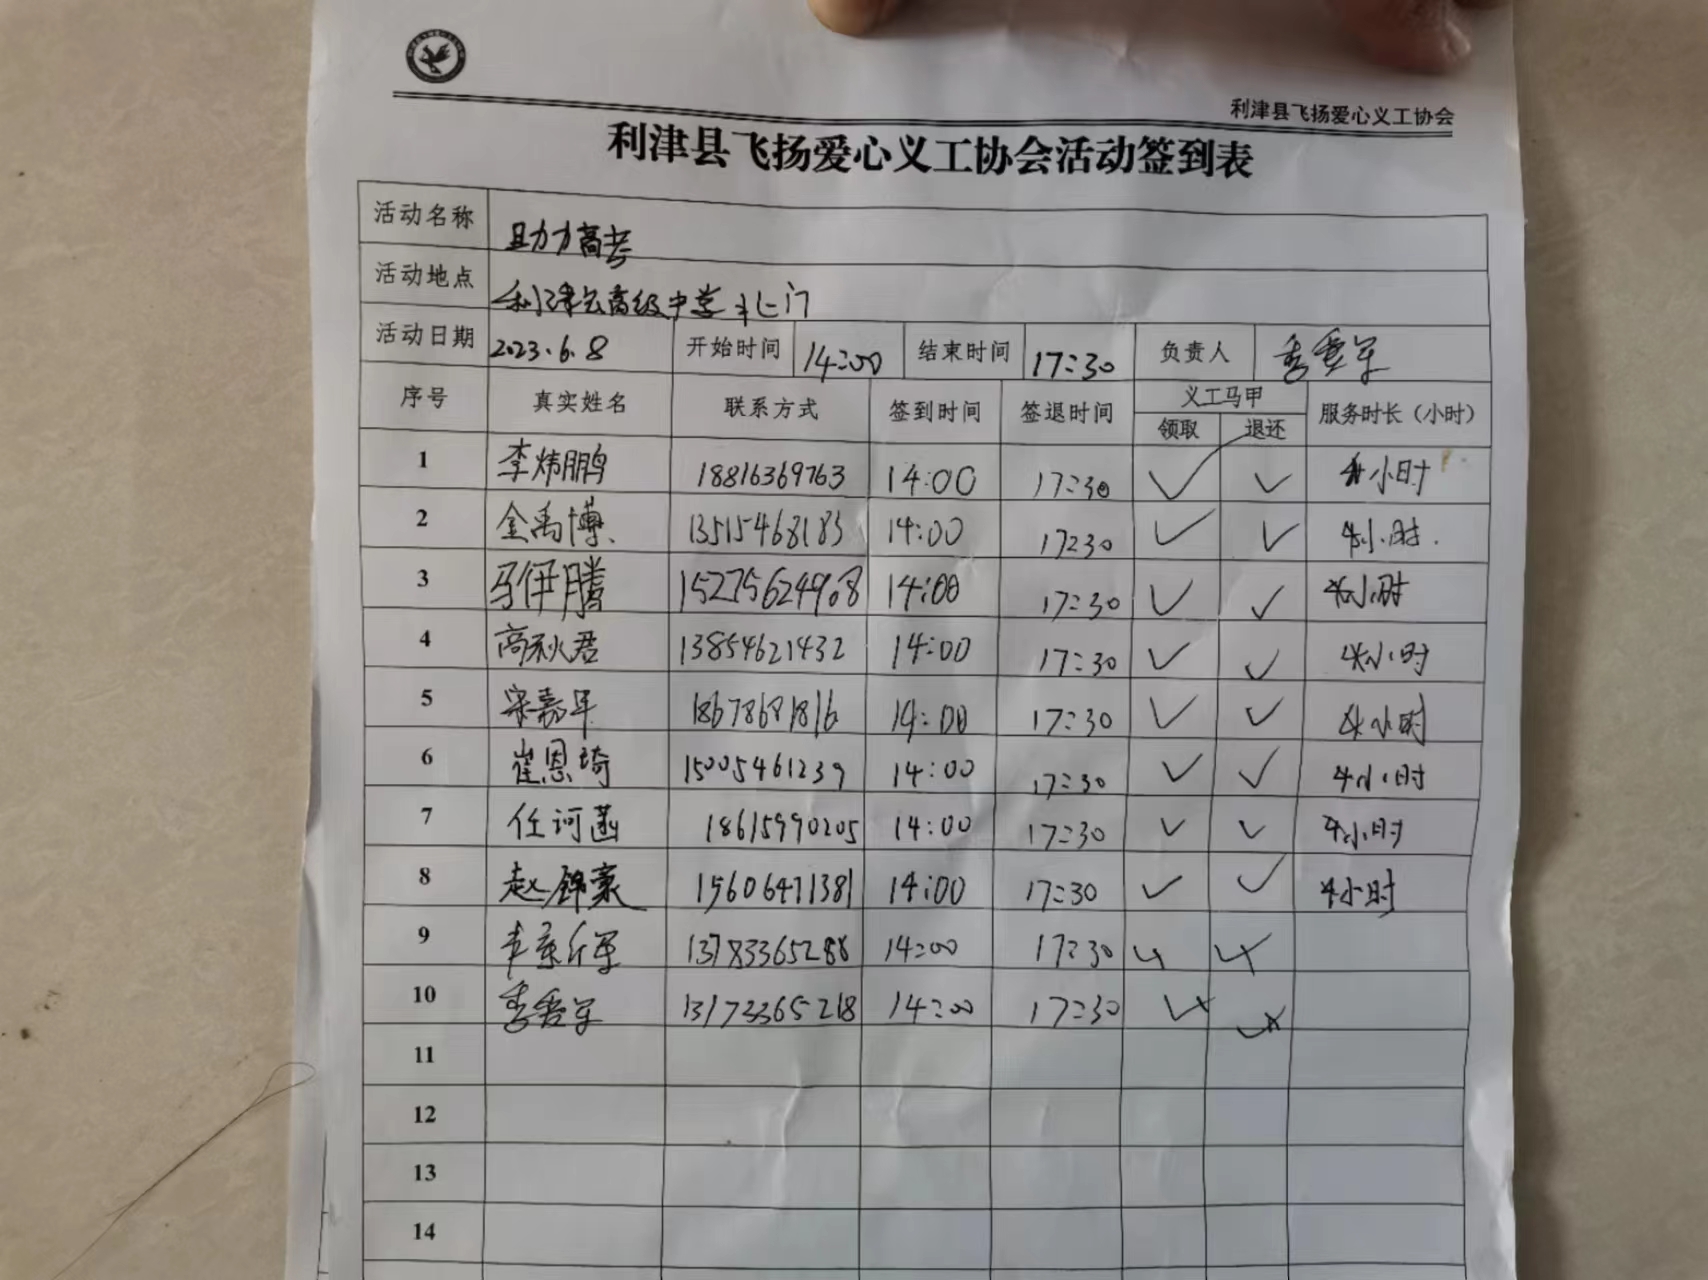 利津县飞扬爱心义工协会
利津县飞扬爱心义工协会活动签到表
活动名称 助力高考
活动地点 利津县高级中学北门
活动日期 2023.6.8 开始时间 14:00 结束时间 17:30 负责人
序号 真实姓名 联系方式 签到时间 签退时间 义工马甲 服务时长（小时）
领取 退还
1 李炜鹏 18816369763 14:00 17:30 ✓ ✓ 4小时
2 金禹博 13515468183 14:00 17:30 ✓ ✓ 4小时.
3 马伊腾 15275624968 14:00 17:30 ✓ ✓ 4小时
4 高秋君 13854621432 14:00 17:30 ✓ ✓ 4小时
5 宋嘉军 18678681816 14:00 17:30 ✓ ✓ 4小时
6 崔恩琦 15005461239 14:00 17:30 ✓ ✓ 4小时
7 任诃菡 18615990205 14:00 17:30 ✓ ✓ 4小时
8 赵锦豪 15606471381 14:00 17:30 ✓ ✓ 4小时
9 14:00 17:30
10 13173365218 14:00 17:30
11
12
13
14